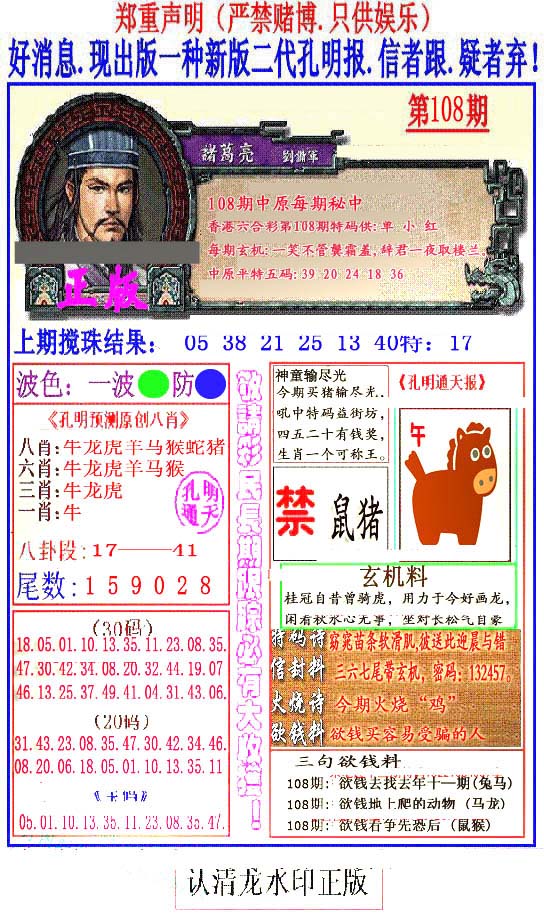 郑重声明（严禁赌博.只供娱乐）
好消息.现出版一种新版二代孔明报.信者跟.疑者弃！
第108期
諸葛亮 劉備軍
108期中原每期秘中
香港六合彩第108期特码供:单 小 红
每期玄机:一笑不管龑霸盖,辞君一夜取楼兰.
中原平特五码:39 20 24 18 36
正版
上期搅珠结果： 05 38 21 25 13 40特：17
波色：一波 防
《孔明预测原创八肖》
八肖:牛龙虎羊马猴蛇猪
六肖:牛龙虎羊马猴
三肖:牛龙虎
一肖:牛
孔明
通天
八卦段:17——41
尾数:159028
(30码)
18.05.01.10.13.35.11.23.08.35.
47.30.42.34.08.20.32.44.19.07
46.13.25.37.49.41.04.31.43.06.
(20码)
31.43.23.08.35.47.30.42.34.46.
08.20.06.18.05.01.10.13.35.11
05.01.10.13.35.11.23.08.35.47.
敬請彩民長期跟踪必有大收益！
神童输尽光
今期买猪输尽光..
吼中特码益街坊，
四五二十有钱奖，
生肖一个可称王。
《孔明通天报》
禁 鼠猪
午
玄机料
桂冠自昔曾骑虎，用力于今好画龙，
闲看秋水心无事，坐对长松气自豪
特码诗 窈窕苗条软滑肌,彼送此迎晨与错
信封料 三六七尾带玄机，密码：132457。
火烧诗 今期火烧“鸡”
欲钱料 欲钱买容易受骗的人
三句欲钱料
108期：欲钱去找去年十一期(兔马)
108期：欲钱地上爬的动物 (马龙)
108期：欲钱看争先恐后 (鼠猴)
认清龙水印正版